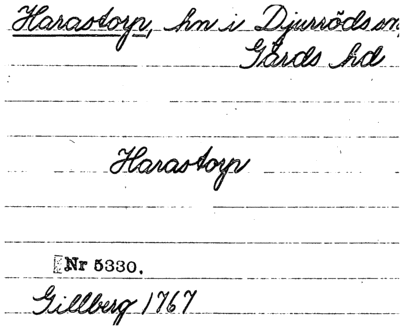 Harastorp, hn i Djurröds sn,
Gärds hd
Harastorp
Nr 5330.
Gillberg 1767